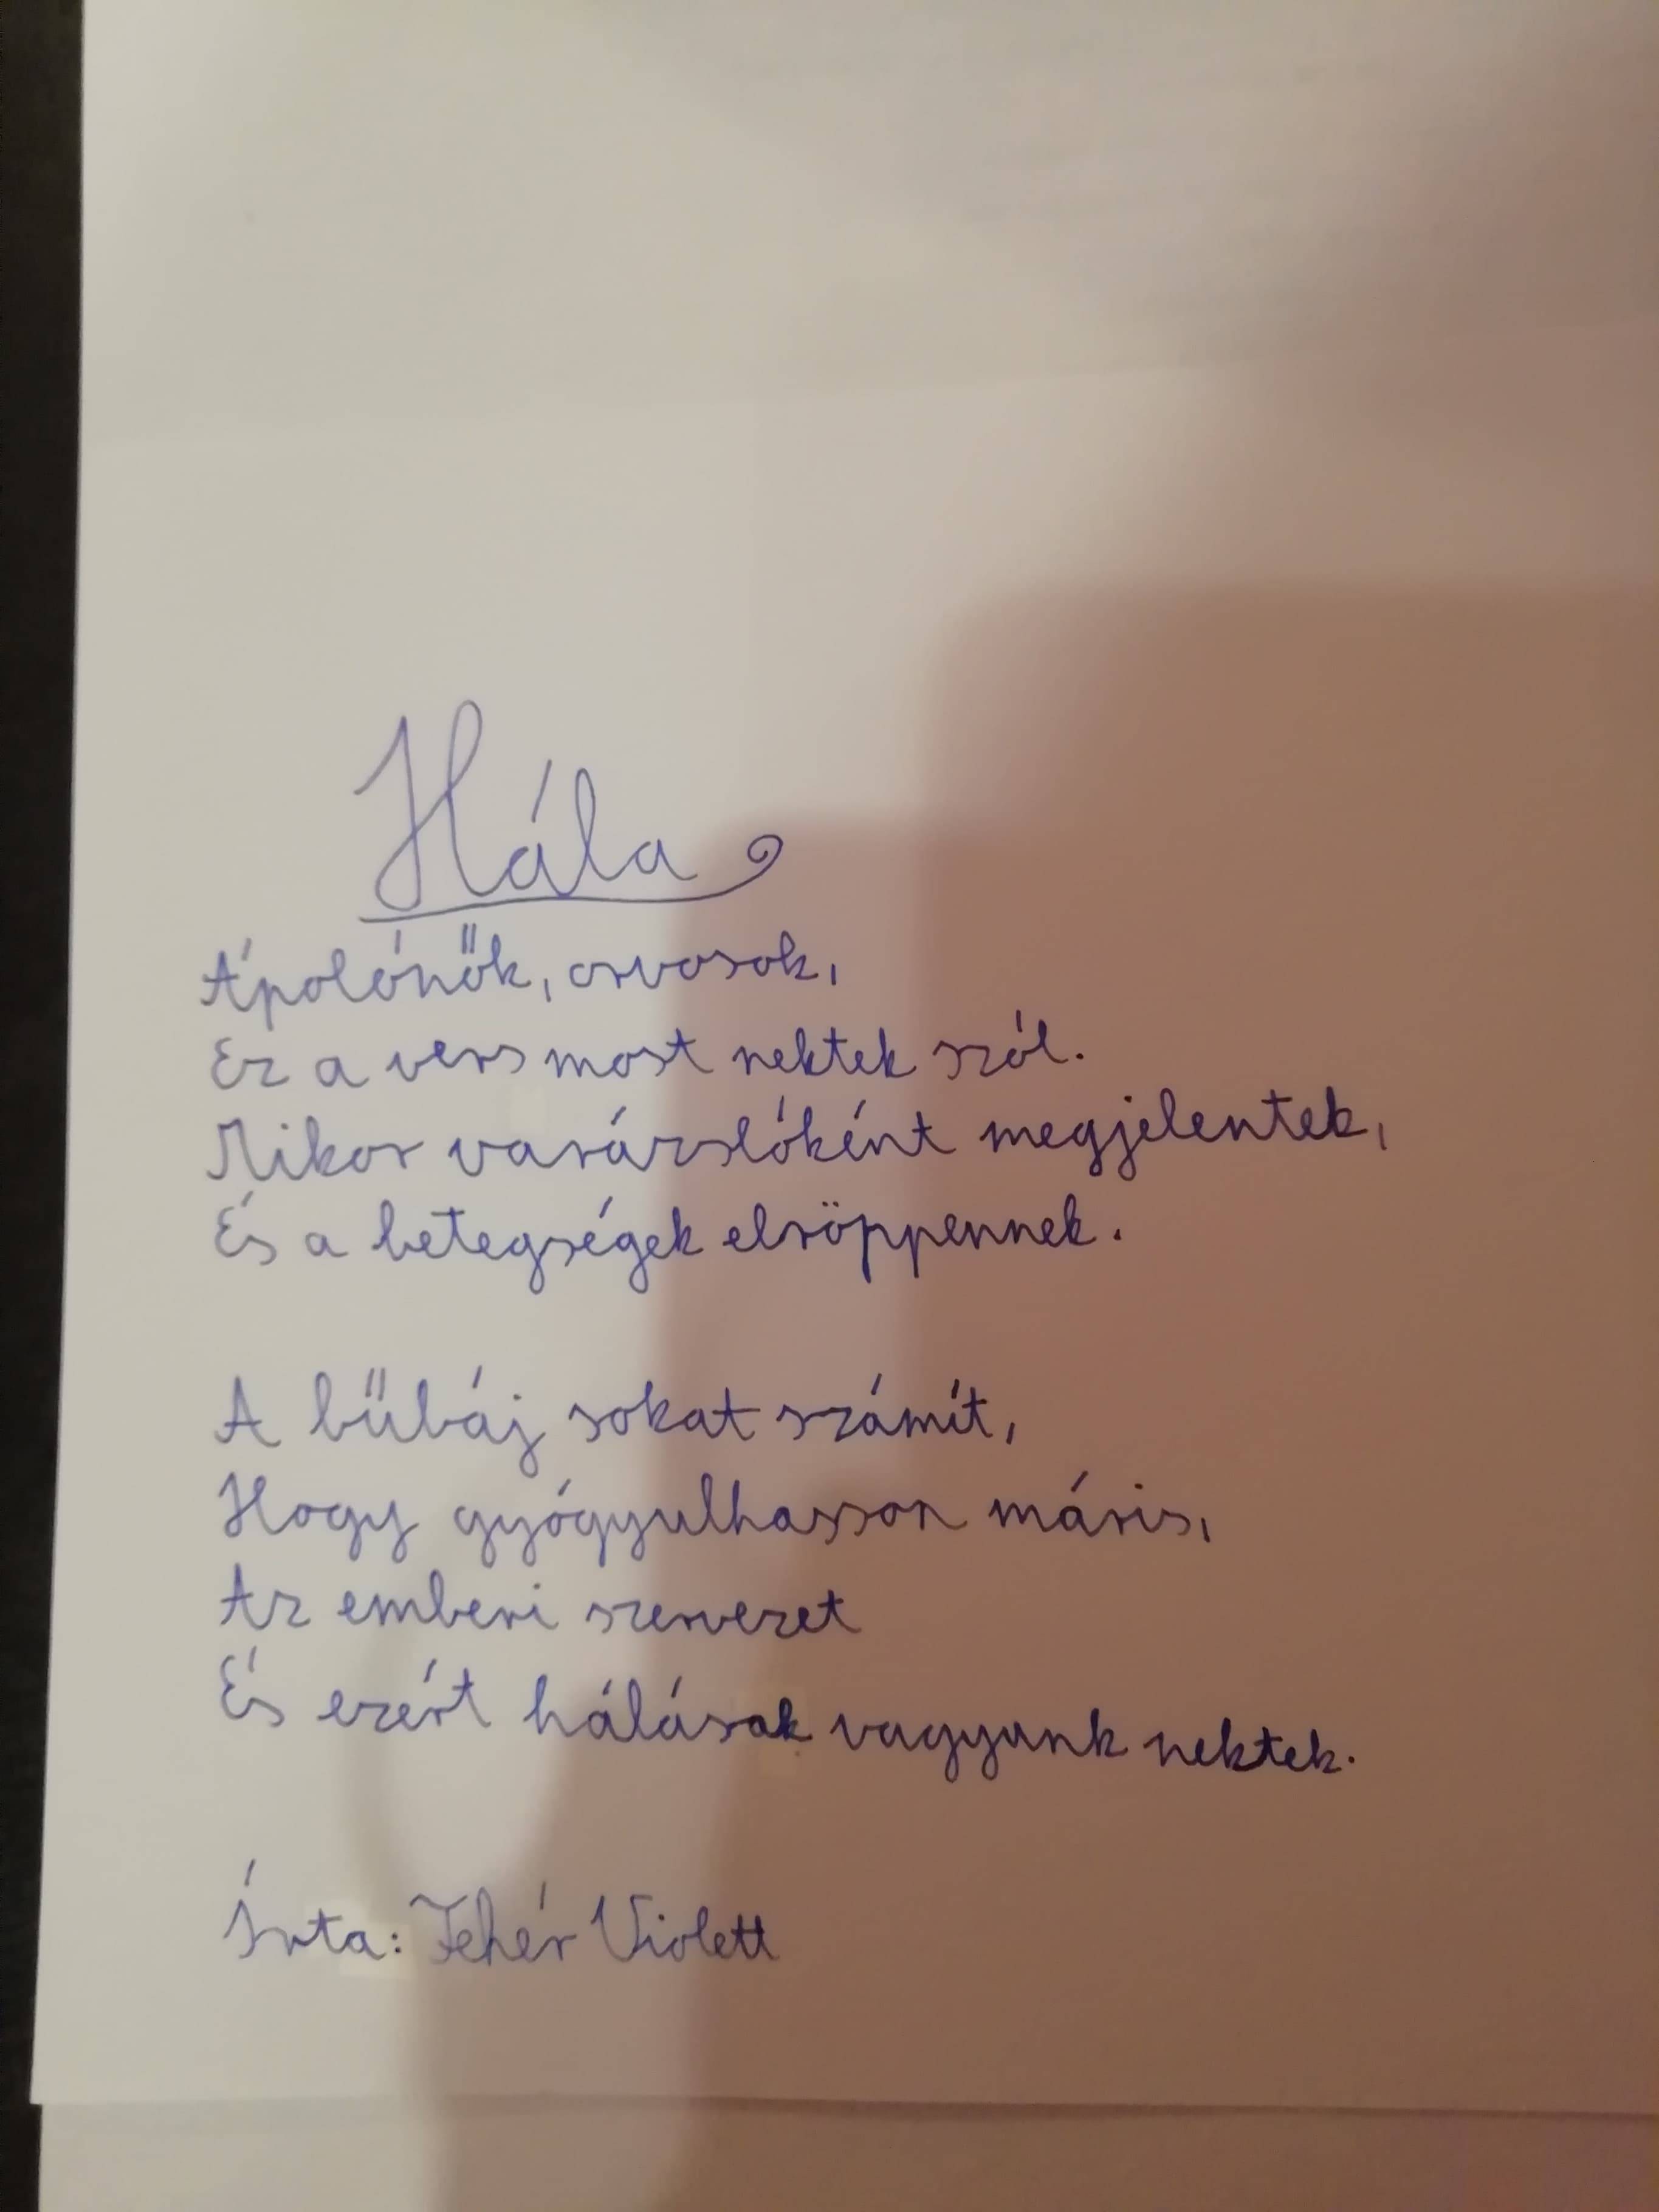 Hála
Ápolónők, orvosok,
Ez a vers most nektek szól.
Mikor varázslóként megjelentek,
És a betegségek elsöppennek.
A bűbáj sokat számít,
Hogy gyógyulhasson máris,
Az emberi szervezet
És ezért hálásak vagyunk nektek.
Írta: Fehér Violett